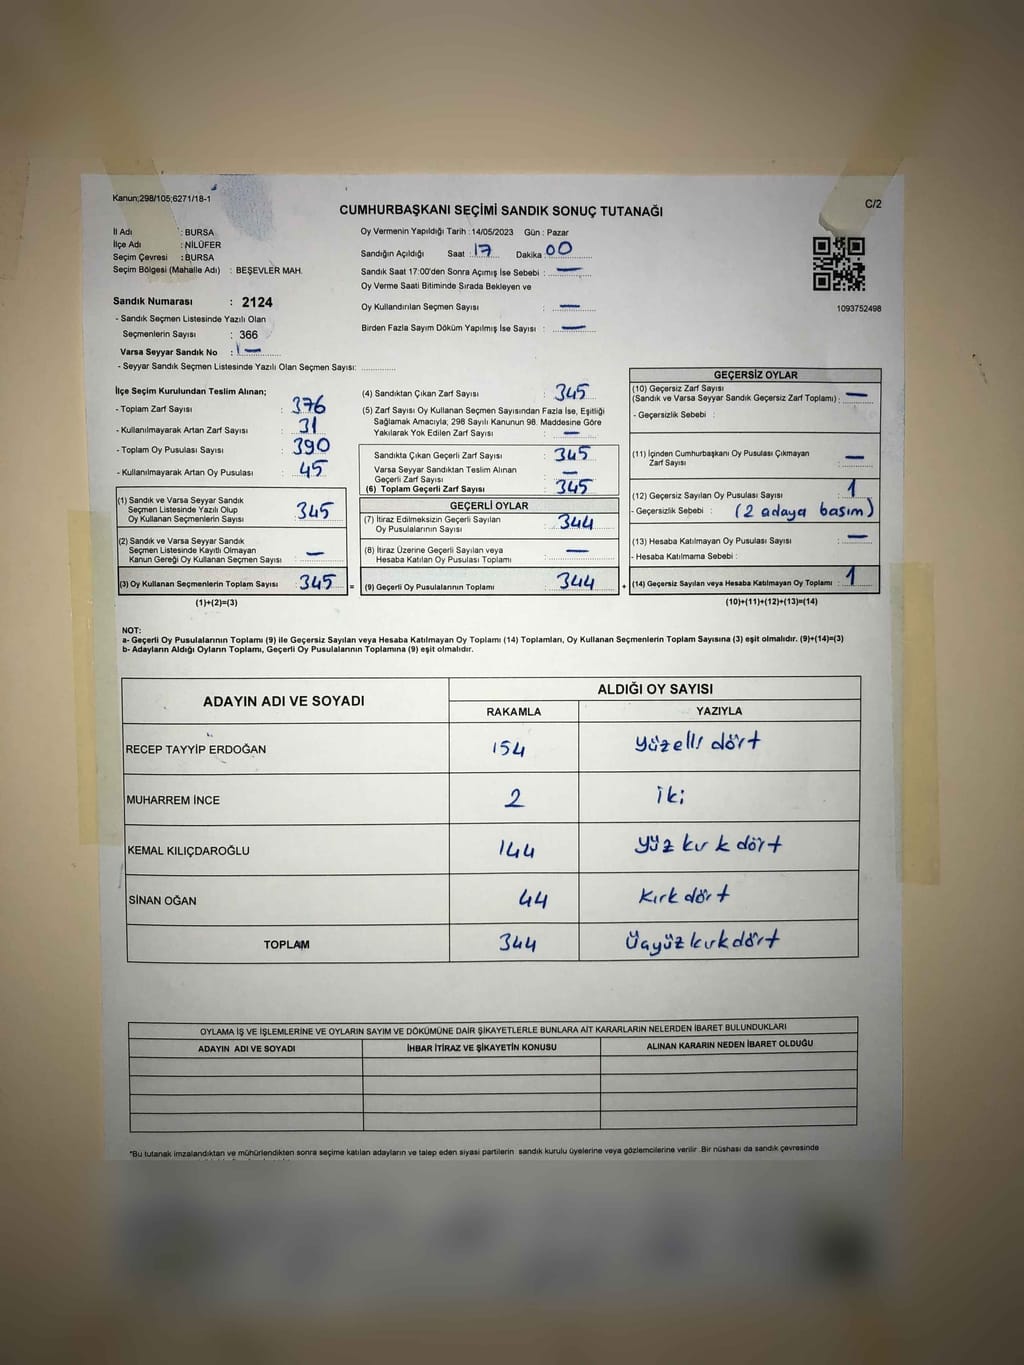 Kanun;298/105;6271/18-1
C/2
CUMHURBAŞKANI SEÇİMİ SANDIK SONUÇ TUTANAĞI
İl Adı : BURSA
İlçe Adı : NİLÜFER
Seçim Çevresi : BURSA
Seçim Bölgesi (Mahalle Adı) : BEŞEVLER MAH.
Sandık Numarası : 2124
- Sandık Seçmen Listesinde Yazılı Olan
Seçmenlerin Sayısı : 366
Varsa Seyyar Sandık No : —
- Seyyar Sandık Seçmen Listesinde Yazılı Olan Seçmen Sayısı: ..............
Oy Vermenin Yapıldığı Tarih : 14/05/2023 Gün : Pazar
Sandığın Açıldığı Saat : 17 Dakika : 00
Sandık Saat 17:00'den Sonra Açımış İse Sebebi : —
Oy Verme Saati Bitiminde Sırada Bekleyen ve
Oy Kullandırılan Seçmen Sayısı : —
Birden Fazla Sayım Döküm Yapılmış İse Sayısı : —
1093752498
İlçe Seçim Kurulundan Teslim Alınan;
- Toplam Zarf Sayısı : 376
- Kullanılmayarak Artan Zarf Sayısı : 31
- Toplam Oy Pusulası Sayısı : 390
- Kullanılmayarak Artan Oy Pusulası : 45
(1) Sandık ve Varsa Seyyar Sandık
Seçmen Listesinde Yazılı Olup
Oy Kullanan Seçmenlerin Sayısı : 345
(2) Sandık ve Varsa Seyyar Sandık
Seçmen Listesinde Kayıtlı Olmayan
Kanun Gereği Oy Kullanan Seçmen Sayısı : —
(3) Oy Kullanan Seçmenlerin Toplam Sayısı : 345 =
(1)+(2)=(3)
(4) Sandıktan Çıkan Zarf Sayısı : 345
(5) Zarf Sayısı Oy Kullanan Seçmen Sayısından Fazla İse, Eşitliği
Sağlamak Amacıyla; 298 Sayılı Kanunun 98. Maddesine Göre
Yakılarak Yok Edilen Zarf Sayısı : —
Sandıkta Çıkan Geçerli Zarf Sayısı : 345
Varsa Seyyar Sandıktan Teslim Alınan
Geçerli Zarf Sayısı : —
(6) Toplam Geçerli Zarf Sayısı : 345
GEÇERLİ OYLAR
(7) İtiraz Edilmeksizin Geçerli Sayılan
Oy Pusulalarının Sayısı : 344
(8) İtiraz Üzerine Geçerli Sayılan veya
Hesaba Katılan Oy Pusulası Toplamı : —
(9) Geçerli Oy Pusulalarının Toplamı : 344 +
GEÇERSİZ OYLAR
(10) Geçersiz Zarf Sayısı
(Sandık ve Varsa Seyyar Sandık Geçersiz Zarf Toplamı) : —
- Geçersizlik Sebebi :
(11) İçinden Cumhurbaşkanı Oy Pusulası Çıkmayan
Zarf Sayısı : —
(12) Geçersiz Sayılan Oy Pusulası Sayısı : 1
- Geçersizlik Sebebi : (2 adaya basım)
(13) Hesaba Katılmayan Oy Pusulası Sayısı : —
- Hesaba Katılmama Sebebi :
(14) Geçersiz Sayılan veya Hesaba Katılmayan Oy Toplamı : 1
(10)+(11)+(12)+(13)=(14)
NOT:
a- Geçerli Oy Pusulalarının Toplamı (9) ile Geçersiz Sayılan veya Hesaba Katılmayan Oy Toplamı (14) Toplamları, Oy Kullanan Seçmenlerin Toplam Sayısına (3) eşit olmalıdır. (9)+(14)=(3)
b- Adayların Aldığı Oyların Toplamı, Geçerli Oy Pusulalarının Toplamına (9) eşit olmalıdır.
ADAYIN ADI VE SOYADI
ALDIĞI OY SAYISI
RAKAMLA YAZIYLA
RECEP TAYYİP ERDOĞAN 154 Yüzelli dört
MUHARREM İNCE 2 iki
KEMAL KILIÇDAROĞLU 144 Yüz kırk dört
SİNAN OĞAN 44 Kırk dört
TOPLAM 344 Üçyüz kırkdört
OYLAMA İŞ VE İŞLEMLERİNE VE OYLARIN SAYIM VE DÖKÜMÜNE DAİR ŞİKAYETLERLE BUNLARA AİT KARARLARIN NELERDEN İBARET BULUNDUKLARI
ADAYIN ADI VE SOYADI İHBAR İTİRAZ VE ŞİKAYETİN KONUSU ALINAN KARARIN NEDEN İBARET OLDUĞU
*Bu tutanak imzalandıktan ve mühürlendikten sonra seçime katılan adayların ve talep eden siyasi partilerin sandık kurulu üyelerine veya gözlemcilerine verilir. Bir nüshası da sandık çevresinde